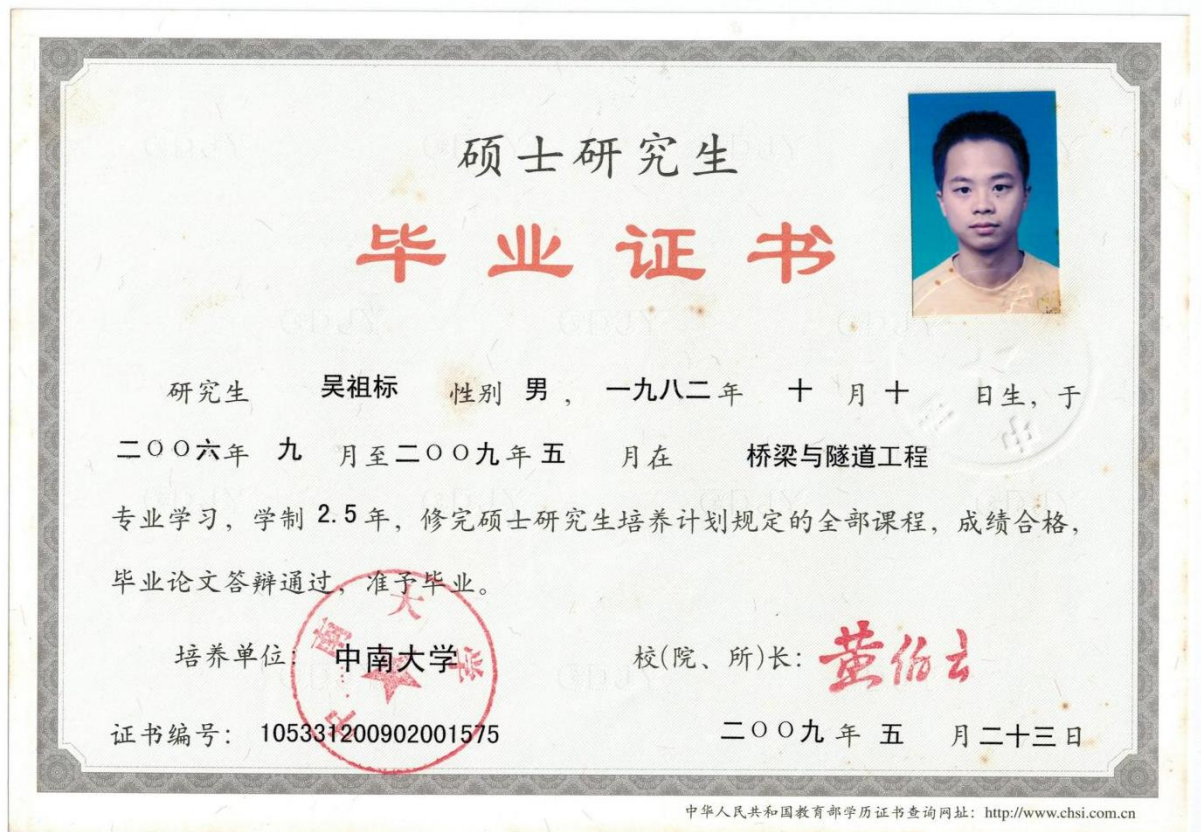 硕士研究生
毕业证书
研究生 吴祖标 性别 男，一九八二年 十 月 十 日生，于
二〇〇六年 九 月至二〇〇九年 五 月在 桥梁与隧道工程
专业学习，学制 2.5 年，修完硕士研究生培养计划规定的全部课程，成绩合格，
毕业论文答辩通过，准予毕业。
培养单位：中南大学 校(院、所)长：黄伯云
中南大学
证书编号：105331200902001575 二〇〇九 年 五 月二十三日
中华人民共和国教育部学历证书查询网址：http://www.chsi.com.cn